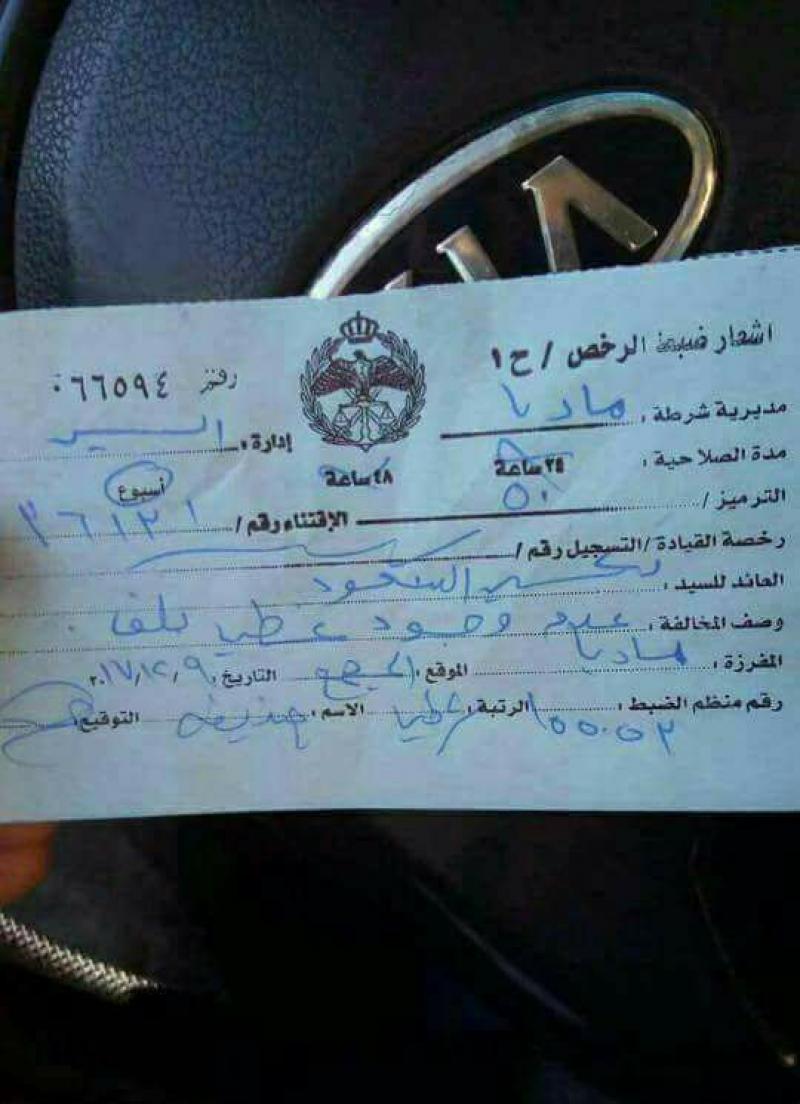 KIA
اشعار ضبط الرخص / ح ١
رقم ٠٦٦٥٩٤
مديرية شرطة : مادبا إدارة : السير
مدة الصلاحية : ٢٤ ساعة ٤٨ ساعة أسبوع
الترميز / ٥٠ الإقتناء رقم / ٣٦١٢١
رخصة القيادة / التسجيل رقم /
العائد للسيد :
وصف المخالفة : عدم وجود غطا بلف
المفرزة : مادبا الموقع : التاريخ ٢٠١٧/١٢/٩
رقم منظم الضبط : الرتبة : الاسم : حذيفه التوقيع